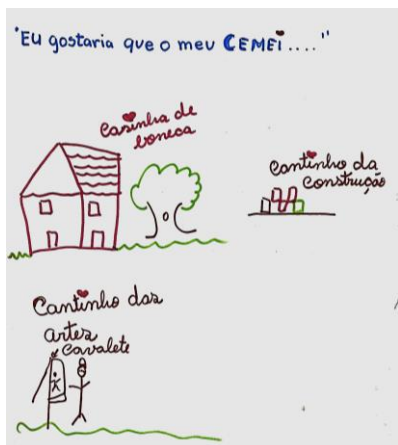 "Eu gostaria que o meu CEMEI...."
Casinha de
boneca
Cantinho da
construção
Cantinho das
artes
cavalete